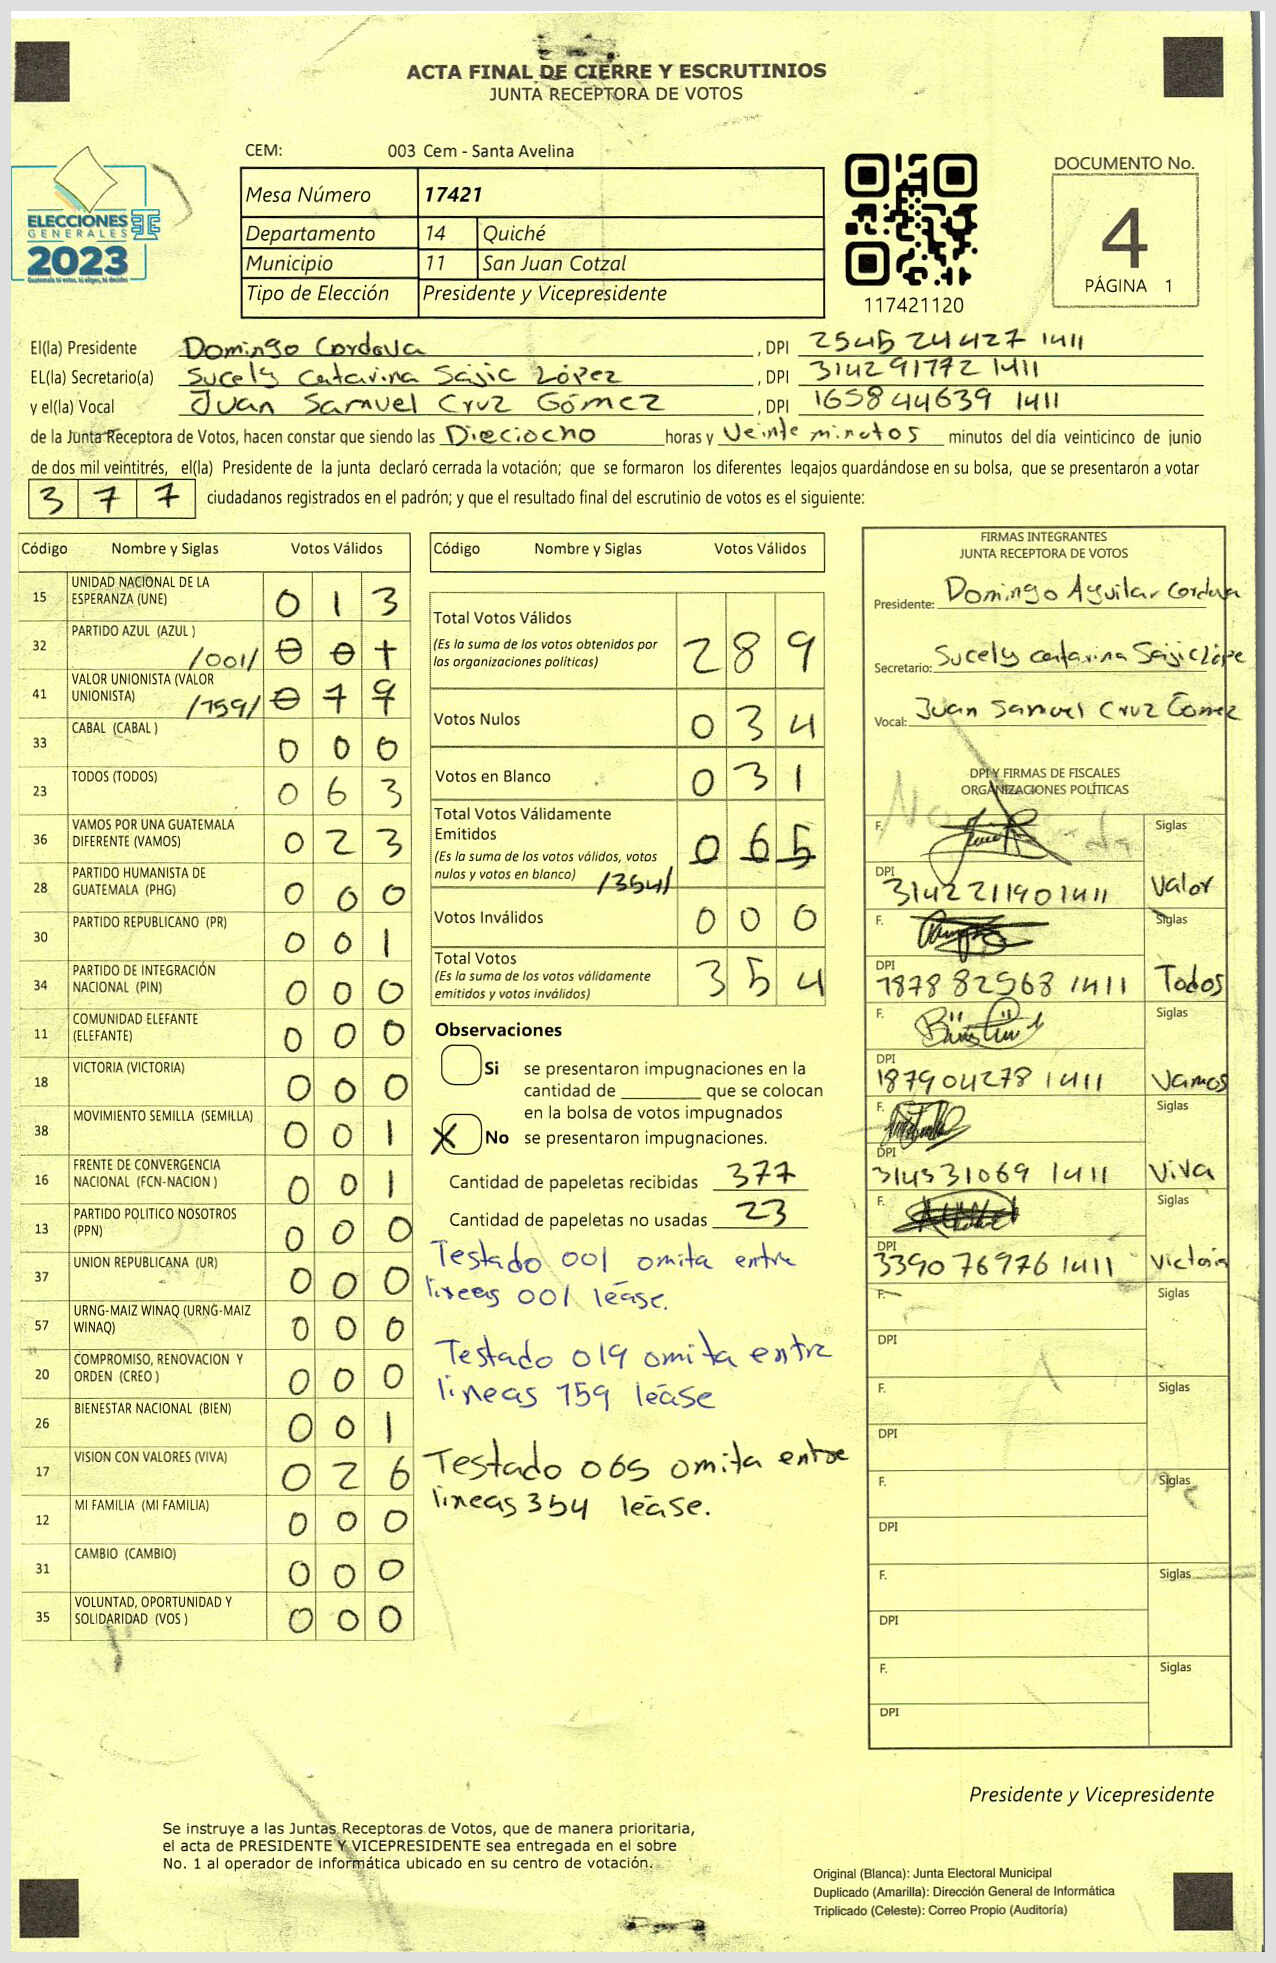 ACTA FINAL DE CIERRE Y ESCRUTINIOS
JUNTA RECEPTORA DE VOTOS
CEM: 003 Cem - Santa Avelina
ELECCIONES
GENERALES
2023
Mesa Número 17421
Departamento 14 Quiché
Municipio 11 San Juan Cotzal
Tipo de Elección Presidente y Vicepresidente
117421120
DOCUMENTO No.
4
PÁGINA 1
El(la) Presidente Domingo Cordova, DPI 2545 24427 1411
EL(la) Secretario(a) Sucely Catarina Sajic López, DPI 314291772 1411
y el(la) Vocal Juan Samuel Cruz Gómez, DPI 165844639 1411
de la Junta Receptora de Votos, hacen constar que siendo las Dieciocho horas y Veinte minutos minutos del día veinticinco de junio
de dos mil veintitrés, el(la) Presidente de la junta declaró cerrada la votación; que se formaron los diferentes legajos guardándose en su bolsa, que se presentaron a votar
377 ciudadanos registrados en el padrón; y que el resultado final del escrutinio de votos es el siguiente:
Código Nombre y Siglas Votos Válidos
15 UNIDAD NACIONAL DE LA
ESPERANZA (UNE) 0 1 3
32 PARTIDO AZUL (AZUL )
/001/ 0 0 1
41 VALOR UNIONISTA (VALOR
UNIONISTA) /159/ 0 7 9
33 CABAL (CABAL ) 0 0 0
23 TODOS (TODOS) 0 6 3
36 VAMOS POR UNA GUATEMALA
DIFERENTE (VAMOS) 0 2 3
28 PARTIDO HUMANISTA DE
GUATEMALA (PHG) 0 0 0
30 PARTIDO REPUBLICANO (PR) 0 0 1
34 PARTIDO DE INTEGRACIÓN
NACIONAL (PIN) 0 0 0
11 COMUNIDAD ELEFANTE
(ELEFANTE) 0 0 0
18 VICTORIA (VICTORIA) 0 0 0
38 MOVIMIENTO SEMILLA (SEMILLA) 0 0 1
16 FRENTE DE CONVERGENCIA
NACIONAL (FCN-NACION ) 0 0 1
13 PARTIDO POLITICO NOSOTROS
(PPN) 0 0 0
37 UNION REPUBLICANA (UR) 0 0 0
57 URNG-MAIZ WINAQ (URNG-MAIZ
WINAQ) 0 0 0
20 COMPROMISO, RENOVACION Y
ORDEN (CREO ) 0 0 0
26 BIENESTAR NACIONAL (BIEN) 0 0 1
17 VISION CON VALORES (VIVA) 0 2 6
12 MI FAMILIA (MI FAMILIA) 0 0 0
31 CAMBIO (CAMBIO) 0 0 0
35 VOLUNTAD, OPORTUNIDAD Y
SOLIDARIDAD (VOS ) 0 0 0
Código Nombre y Siglas Votos Válidos
Total Votos Válidos
(Es la suma de los votos obtenidos por
las organizaciones políticas) 2 8 9
Votos Nulos 0 3 4
Votos en Blanco 0 3 1
Total Votos Válidamente
Emitidos
(Es la suma de los votos válidos, votos
nulos y votos en blanco) /354/ 0 6 5
Votos Inválidos 0 0 0
Total Votos
(Es la suma de los votos válidamente
emitidos y votos inválidos) 3 5 4
Observaciones
Si se presentaron impugnaciones en la
cantidad de ________ que se colocan
en la bolsa de votos impugnados
X No se presentaron impugnaciones.
Cantidad de papeletas recibidas 377
Cantidad de papeletas no usadas 23
Testado 001 omita entre
lineas 001 léase.
Testado 019 omita entre
lineas 159 léase
Testado 065 omita entre
lineas 354 léase.
FIRMAS INTEGRANTES
JUNTA RECEPTORA DE VOTOS
Presidente: Domingo Aguilar Cordova
Secretario: Sucely Catarina Sajic López
Vocal: Juan Samuel Cruz Gómez
DPI Y FIRMAS DE FISCALES
ORGANIZACIONES POLÍTICAS
F. Siglas
DPI 3142 21190 1411 Valor
F. Siglas
DPI 1878 82568 1411 Todos
F. Siglas
DPI 187904278 1411 Vamos
F. Siglas
DPI 314331069 1411 Viva
F. Siglas
DPI 3390 76976 1411 Victoria
F. Siglas
DPI
F. Siglas
DPI
F. Siglas
DPI
F. Siglas
DPI
F. Siglas
DPI
Presidente y Vicepresidente
Se instruye a las Juntas Receptoras de Votos, que de manera prioritaria,
el acta de PRESIDENTE Y VICEPRESIDENTE sea entregada en el sobre
No. 1 al operador de informática ubicado en su centro de votación.
Original (Blanca): Junta Electoral Municipal
Duplicado (Amarilla): Dirección General de Informática
Triplicado (Celeste): Correo Propio (Auditoría)